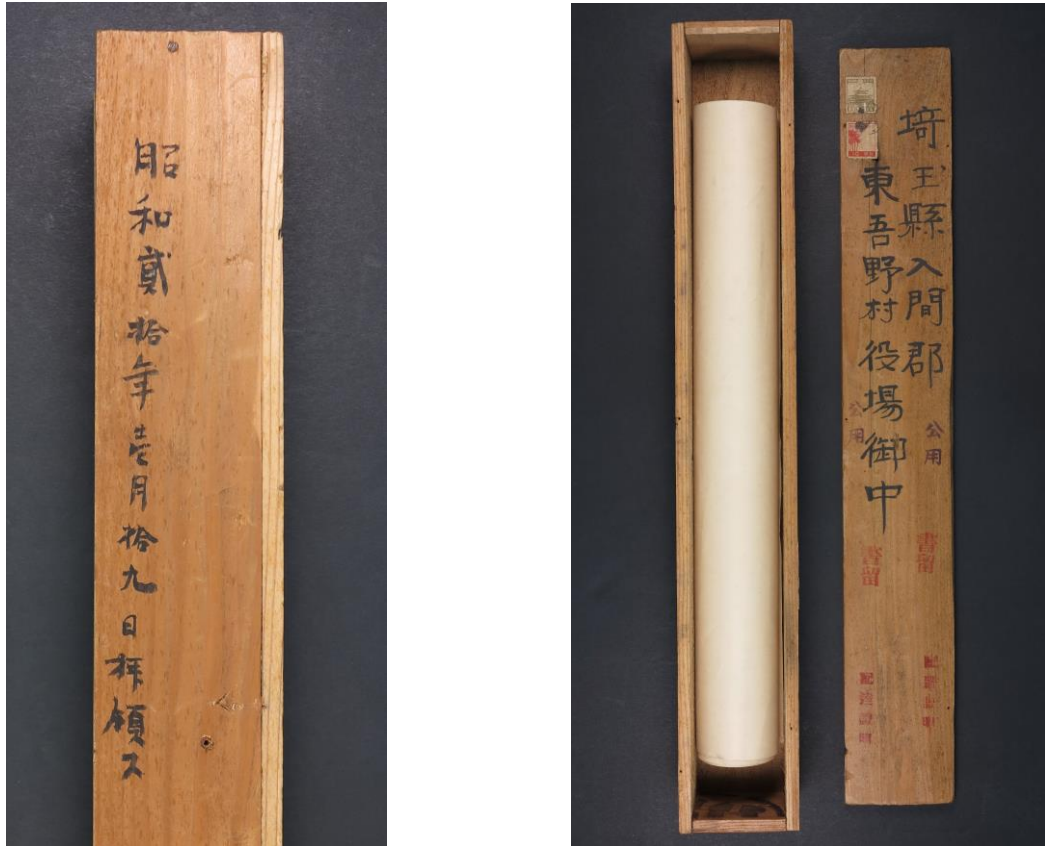 昭和貳拾年壱月拾九日拝領ス
埼玉縣入間郡
東吾野村役場御中
公用
公用
書留
書留
配達證明
配達證明